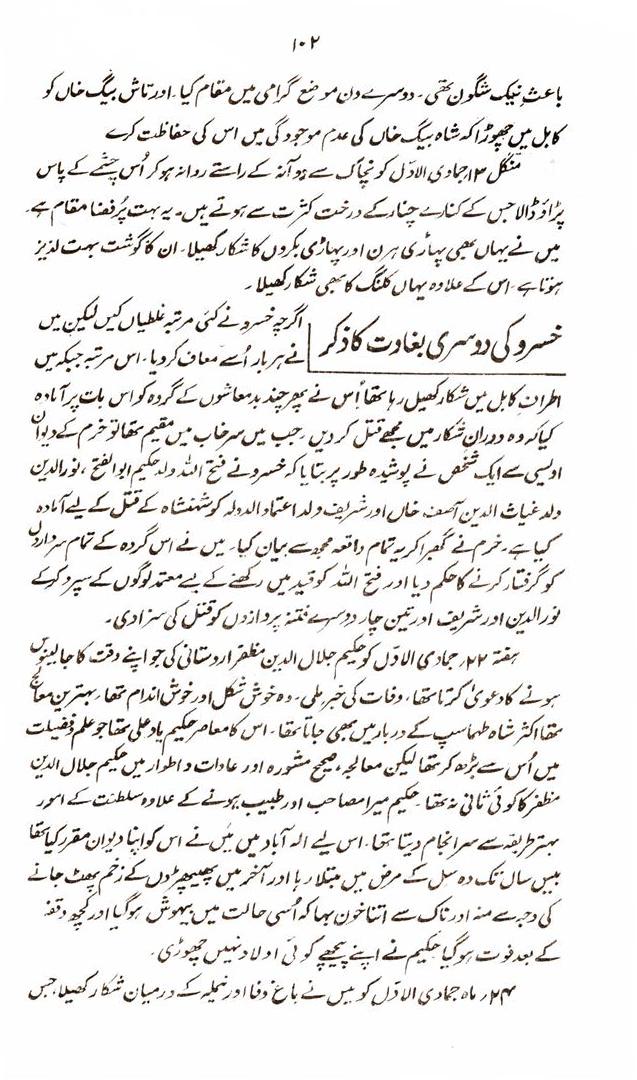 ۱۰۲
باعثِ نیک شگون تھی۔ دوسرے دن موضع گرامی میں مقام کیا۔ اور تاش بیگ خاں کو
کابل میں چھوڑا کہ شاہ بیگ خاں کی عدم موجودگی میں اس کی حفاظت کرے
منگل ۱۳؍ جمادی الاوّل کو نچاک سے دوآنہ کے راستے روانہ ہو کر اُس چشمے کے پاس
پڑاؤ ڈالا جس کے کنارے چنار کے درخت کثرت سے ہوتے ہیں۔ یہ بہت پُرفضا مقام ہے۔
میں نے یہاں بھی پہاڑی ہرن اور پہاڑی بکروں کا شکار کھیلا۔ ان کا گوشت بہت لذیز
ہوتا ہے۔ اس کے علاوہ یہاں کلنگ کا بھی شکار کھیلا۔
خسرو کی دوسری بغاوت کا ذکر
اگرچہ خسرو نے کئی مرتبہ غلطیاں کیں لیکن میں
نے ہر بار اُسے معاف کر دیا۔ اس مرتبہ جبکہ میں
اطرافِ کابل میں شکار کھیل رہا تھا اُس نے پھر چند بدمعاشوں کے گروہ کو اس بات پر آمادہ
کیا کہ وہ دورانِ شکار میں مجھے قتل کر دیں۔ جب میں سرخاب میں مقیم تھا تو خرم کے دیوان
اویسی سے ایک شخص نے پوشیدہ طور پر بتایا کہ خسرو نے فتح اللہ ولد حکیم ابوالفتح، نورالدین
ولد غیاث الدین آصف خاں اور شریف ولد اعتماد الدولہ کو شہنشاہ کے قتل کے لیے آمادہ
کیا ہے۔ خرم نے گھبرا کر یہ تمام واقعہ مجھ سے بیان کیا۔ میں نے اس گروہ کے تمام سرداروں
کو گرفتار کرنے کا حکم دیا اور فتح اللہ کو قید میں رکھنے کے لیے معتمد لوگوں کے سپرد کر کے
نورالدین اور شریف اور تین چار دوسرے فتنہ پردازوں کو قتل کی سزا دی۔
ہفتہ ۲۲؍ جمادی الاوّل کو حکیم جلال الدین مظفر اردستانی کی جو اپنے وقت کا جالینوس
ہونے کا دعویٰ کرتا تھا، وفات کی خبر ملی۔ وہ خوش شکل اور خوش اندام تھا۔ بہترین معالج
تھا اکثر شاہ طہماسپ کے دربار میں بھی جاتا تھا۔ اس کا معاصر حکیم یاد علی تھا جو علم و فضیلت
میں اُس سے بڑھ کر تھا لیکن معالجہ، صحیح مشورہ اور عادات و اطوار میں حکیم جلال الدین
مظفر کا کوئی ثانی نہ تھا۔ حکیم میرا مصاحب اور طبیب ہونے کے علاوہ سلطنت کے امور
بہتر طریقہ سے سرانجام دیتا تھا۔ اس لیے الہ آباد میں میں نے اس کو اپنا دیوان مقرر کیا تھا
بیس سال تک وہ سل کے مرض میں مبتلا رہا اور آخر میں پھیپھڑوں کے زخم پھٹ جانے
کی وجہ سے منہ اور ناک سے اتنا خون بہا کہ اُسی حالت میں بیہوش ہو گیا اور کچھ وقفہ
کے بعد فوت ہو گیا حکیم نے اپنے پیچھے کوئی اولاد نہیں چھوڑی۔
۲۴؍ ماہ جمادی الاوّل کو میں نے باغ وفا اور نمیلہ کے درمیان شکار کھیلا، جس